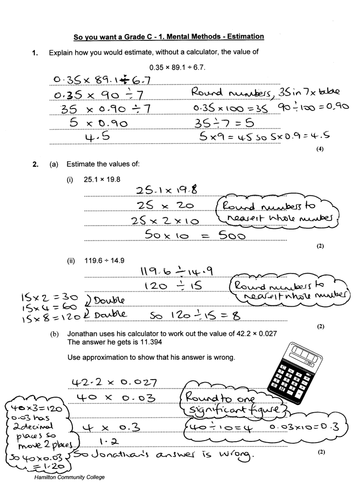 So you want a Grade C - 1, Mental Methods - Estimation
1. Explain how you would estimate, without a calculator, the value of
0.35 × 89.1 ÷ 6.7.
0.35 × 89.1 ÷ 6.7
0.35 × 90 ÷ 7 Round numbers, 35 in 7 x table
35 × 0.90 ÷ 7 0.35 × 100 = 35 90 ÷ 100 = 0.90
5 × 0.90 35 ÷ 7 = 5
4.5 5 × 9 = 45 so 5 × 0.9 = 4.5
(4)
2. (a) Estimate the values of:
(i) 25.1 × 19.8
25.1 × 19.8
25 × 20 Round numbers to
25 × 2 × 10 nearest whole number
50 × 10 = 500
(2)
(ii) 119.6 ÷ 14.9
119.6 ÷ 14.9
120 ÷ 15 Round numbers to
nearest whole number
15 × 2 = 30
15 × 4 = 60 Double
15 × 8 = 120 Double So 120 ÷ 15 = 8
(2)
(b) Jonathan uses his calculator to work out the value of 42.2 × 0.027
The answer he gets is 11.394
Use approximation to show that his answer is wrong.
42.2 × 0.027
40 × 0.03 Round to one
significant figure
4 × 0.3 40 ÷ 10 = 4 0.03 × 10 = 0.3
1.2
So Jonathan's answer is wrong.
(2)
40 × 3 = 120
0.03 has
2 decimal
places so
move 2 places
So 40 × 0.03
= 1.20
Hamilton Community College